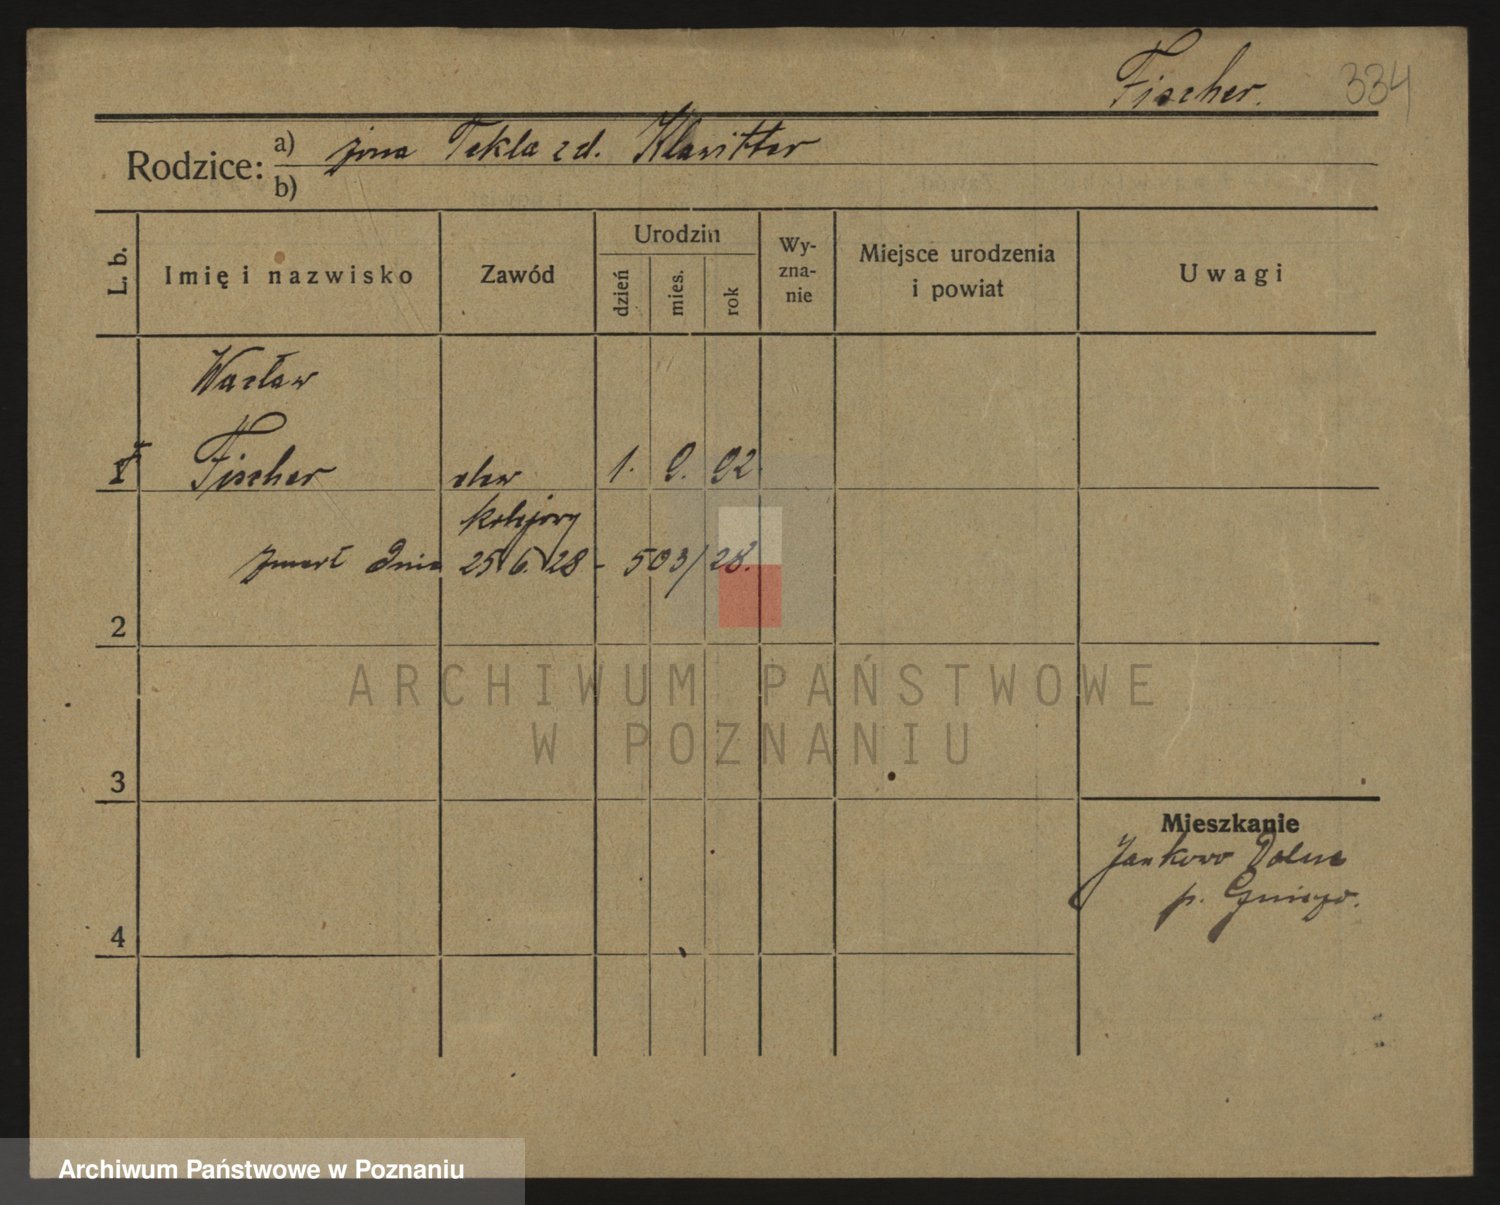 Fischer. 334
Rodzice: a) żona Tekla zd. Klawitter
b)
L. b. Imię i nazwisko Zawód Urodzin dzień mies. rok Wyznanie Miejsce urodzenia i powiat Uwagi
Wacław
1 Fischer 1. 9. 92
kolejowy
zmarł dnia 25.6.28 - 503/28.
2
ARCHIWUM PAŃSTWOWE
W POZNANIU
3
Mieszkanie
Jankowo Dolne
p. Gniezno.
4
Archiwum Państwowe w Poznaniu